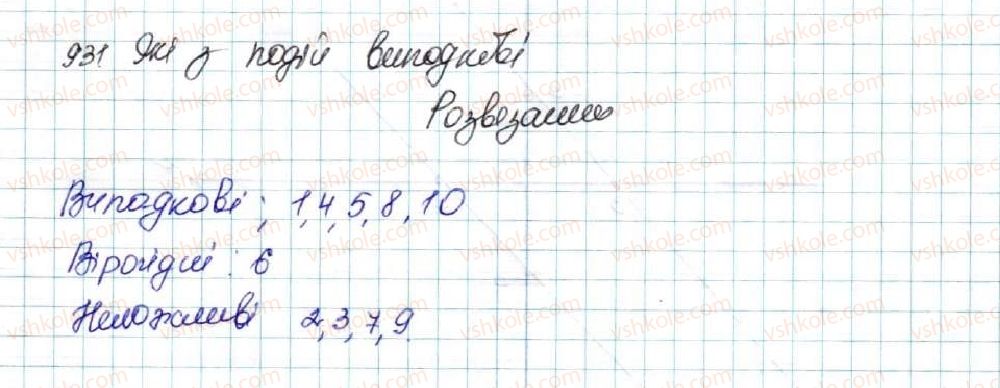 931 Які з подій випадкові
Розвязання
Випадкові : 1,4,5,8,10
Вірогідні : 6
Неможливі 2,3,7,9.